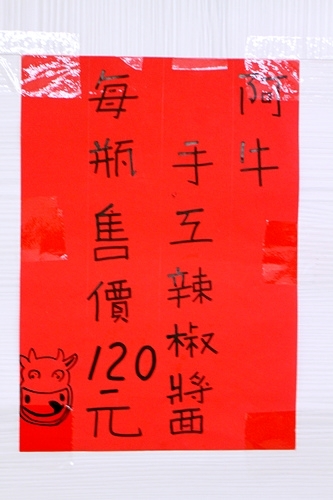 阿牛
手工辣椒醬
每瓶售價120元